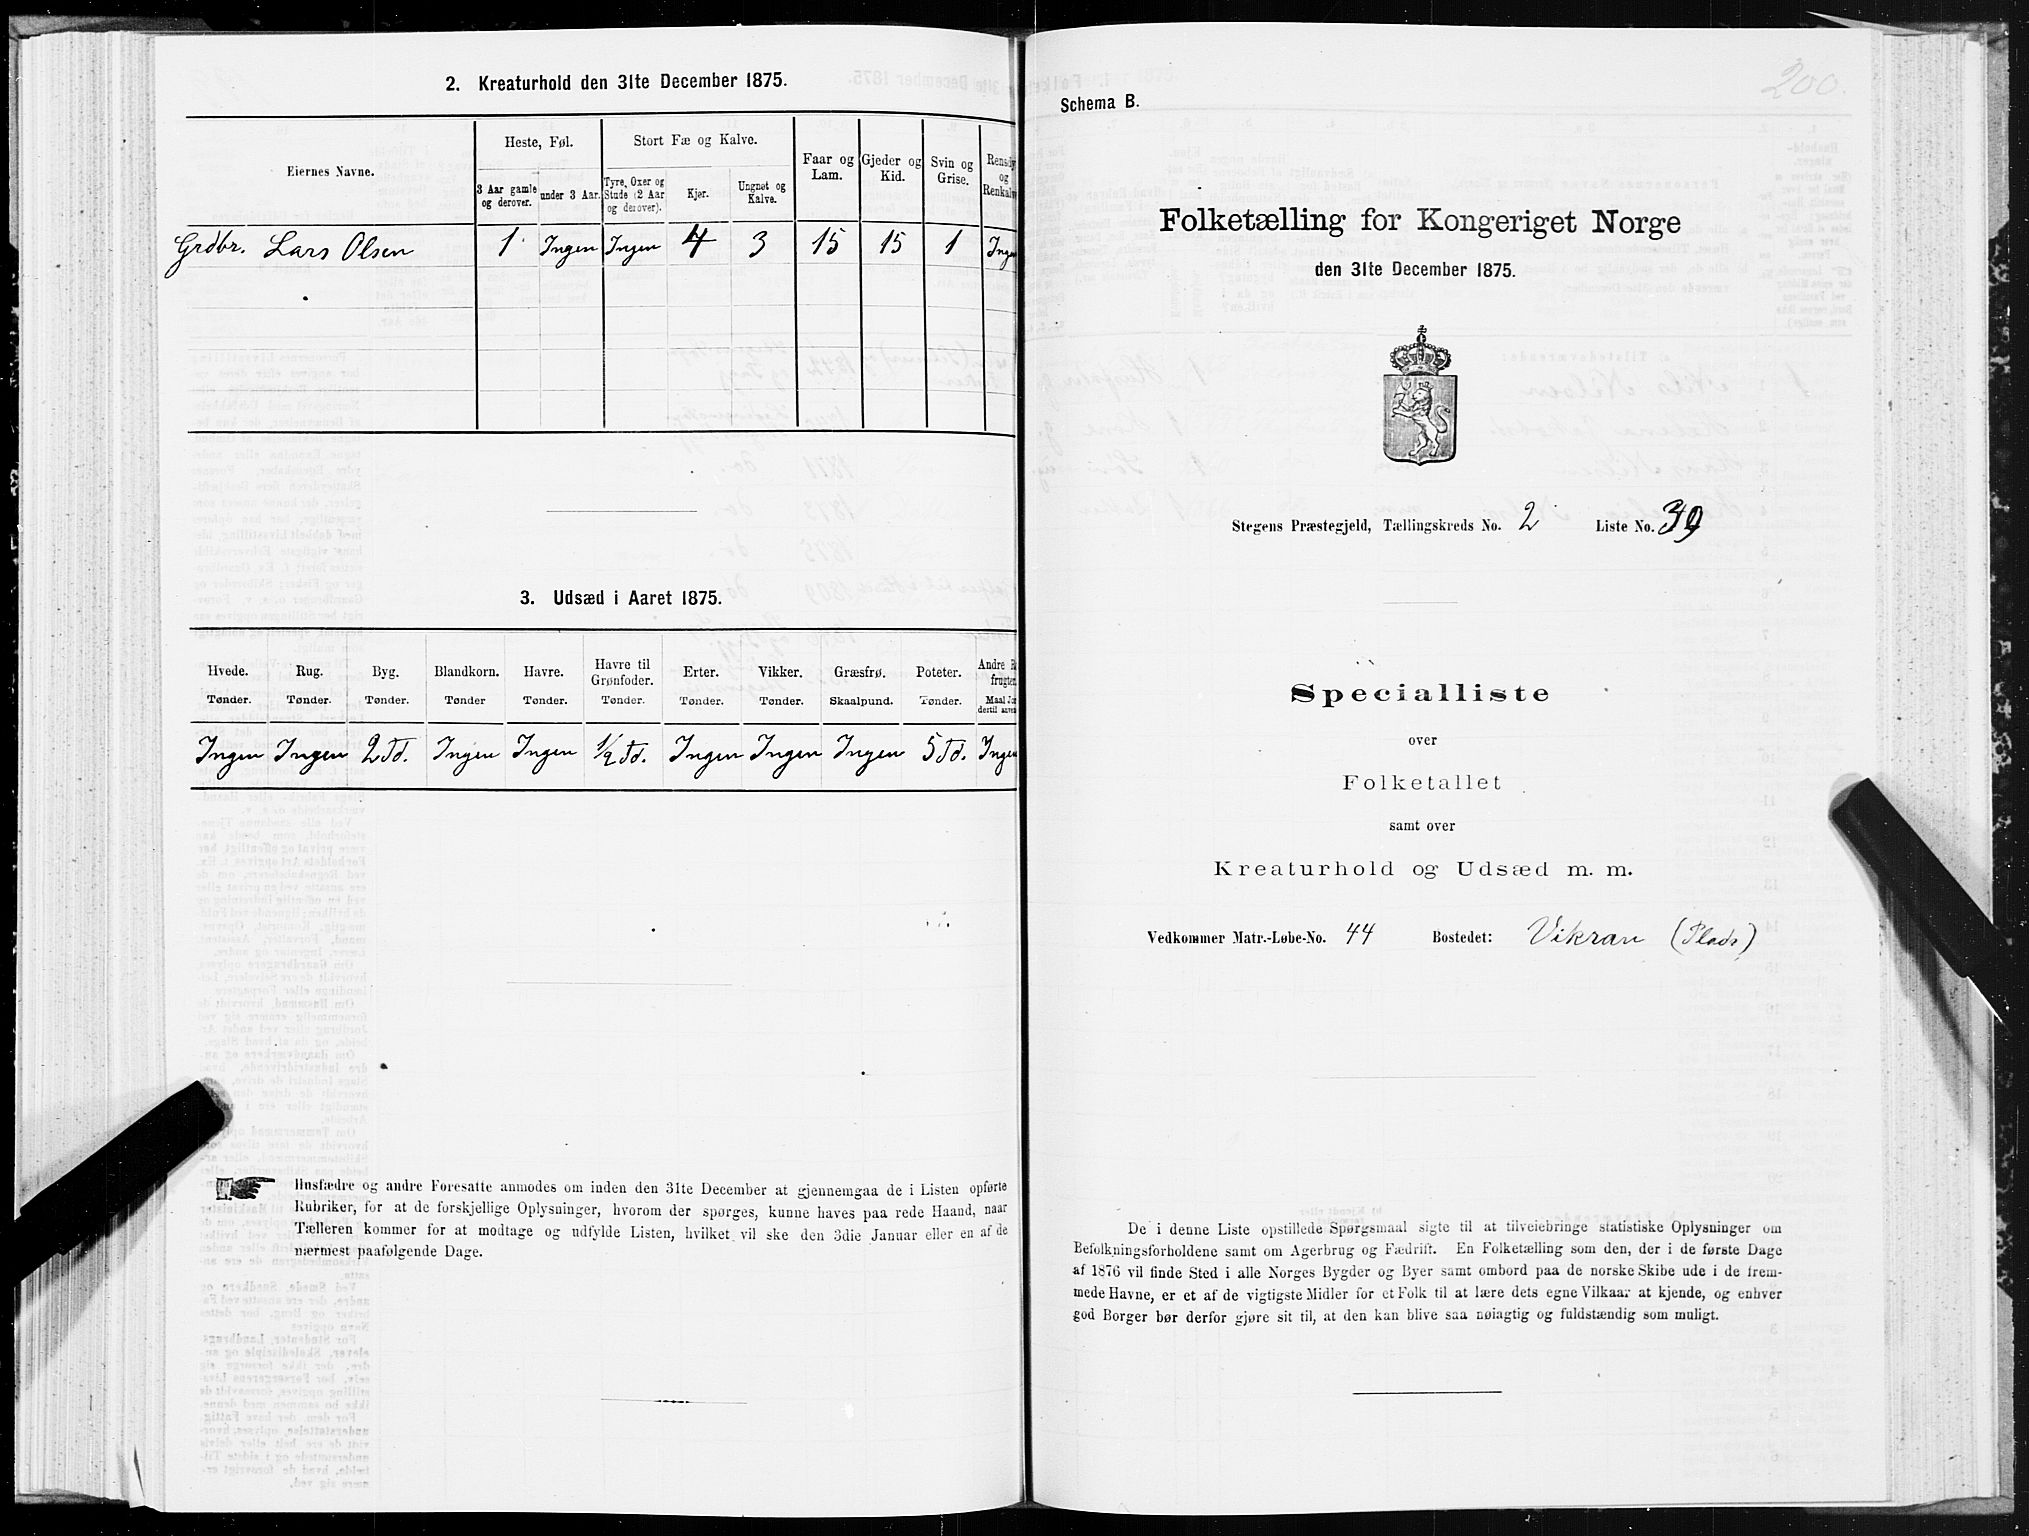 2. Kreaturhold den 31te December 1875.
Eiernes Navne.
Heste, Føl.
3 Aar gamle og derover.
under 3 Aar.
Stort Fæ og Kalve.
Tyre, Oxer og Stude (2 Aar og derover).
Kjør.
Ungnøt og Kalve.
Faar og Lam.
Gjeder og Kid.
Svin og Grise.
Rensdy
og
Renkalve
Grdbr. Lars Olsen 1 Ingen Ingen 4 3 15 15 1 Ingen
3. Udsæd i Aaret 1875.
Hvede. Rug. Byg. Blandkorn. Havre. Havre til Grønfoder. Erter. Vikker. Græsfrø. Poteter. Andre R
frugter
Tønder. Tønder. Tønder. Tønder Tønder. Tønder. Tønder. Tønder. Skaalpund. Tønder. Maal Jor
dertil anven
Ingen Ingen 2 Td. Ingen Ingen 1/2 Td. Ingen Ingen Ingen 5 Td. Ingen
Husfædre og andre Foresatte anmodes om inden den 31te December at gjennemgaa de i Listen opførte
Rubriker, for at de forskjellige Oplysninger, hvorom der spørges, kunne haves paa rede Haand, naar
Tælleren kommer for at modtage og udfylde Listen, hvilket vil ske den 3die Januar eller en af de
nærmest paafølgende Dage.
200.
Schema B.
Folketælling for Kongeriget Norge
den 31te December 1875.
Stegens Præstegjeld, Tællingskreds No. 2 Liste No. 39
Specialliste
over
Folketallet
samt over
Kreaturhold og Udsæd m. m.
Vedkommer Matr.-Løbe-No. 44 Bostedet: Vikran (Plads)
De i denne Liste opstillede Spørgsmaal sigte til at tilveiebringe statistiske Oplysninger om
Befolkningsforholdene samt om Agerbrug og Fædrift. En Folketælling som den, der i de første Dage
af 1876 vil finde Sted i alle Norges Bygder og Byer samt ombord paa de norske Skibe ude i de frem-
mede Havne, er et af de vigtigste Midler for et Folk til at lære dets egne Vilkaar at kjende, og enhver
god Borger bør derfor gjøre sit til, at den kan blive saa nøiagtig og fuldstændig som muligt.